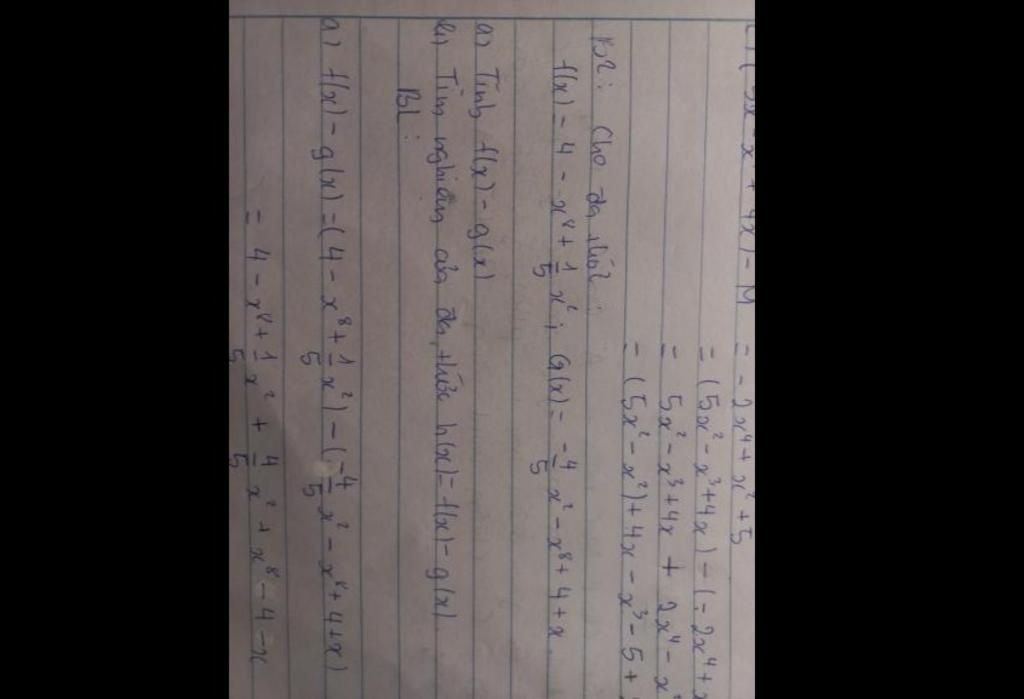 = -2x⁴ + x² + 5
= (5x² - x³ + 4x) - (-2x⁴ +
= 5x² - x³ + 4x + 2x⁴ - x²
= (5x² - x²) + 4x - x³ - 5 +
B2: Cho đa thức:
f(x) = 4 - x⁸ + 1/5 x² ; G(x) = -4/5 x² - x⁸ + 4 + x.
a) Tính f(x) - g(x)
b) Tìm nghiệm của đa thức h(x) = f(x) - g(x).
BL:
a) f(x) - g(x) = (4 - x⁸ + 1/5 x²) - (-4/5 x² - x⁸ + 4 + x)
= 4 - x⁸ + 1/5 x² + 4/5 x² + x⁸ - 4 - x